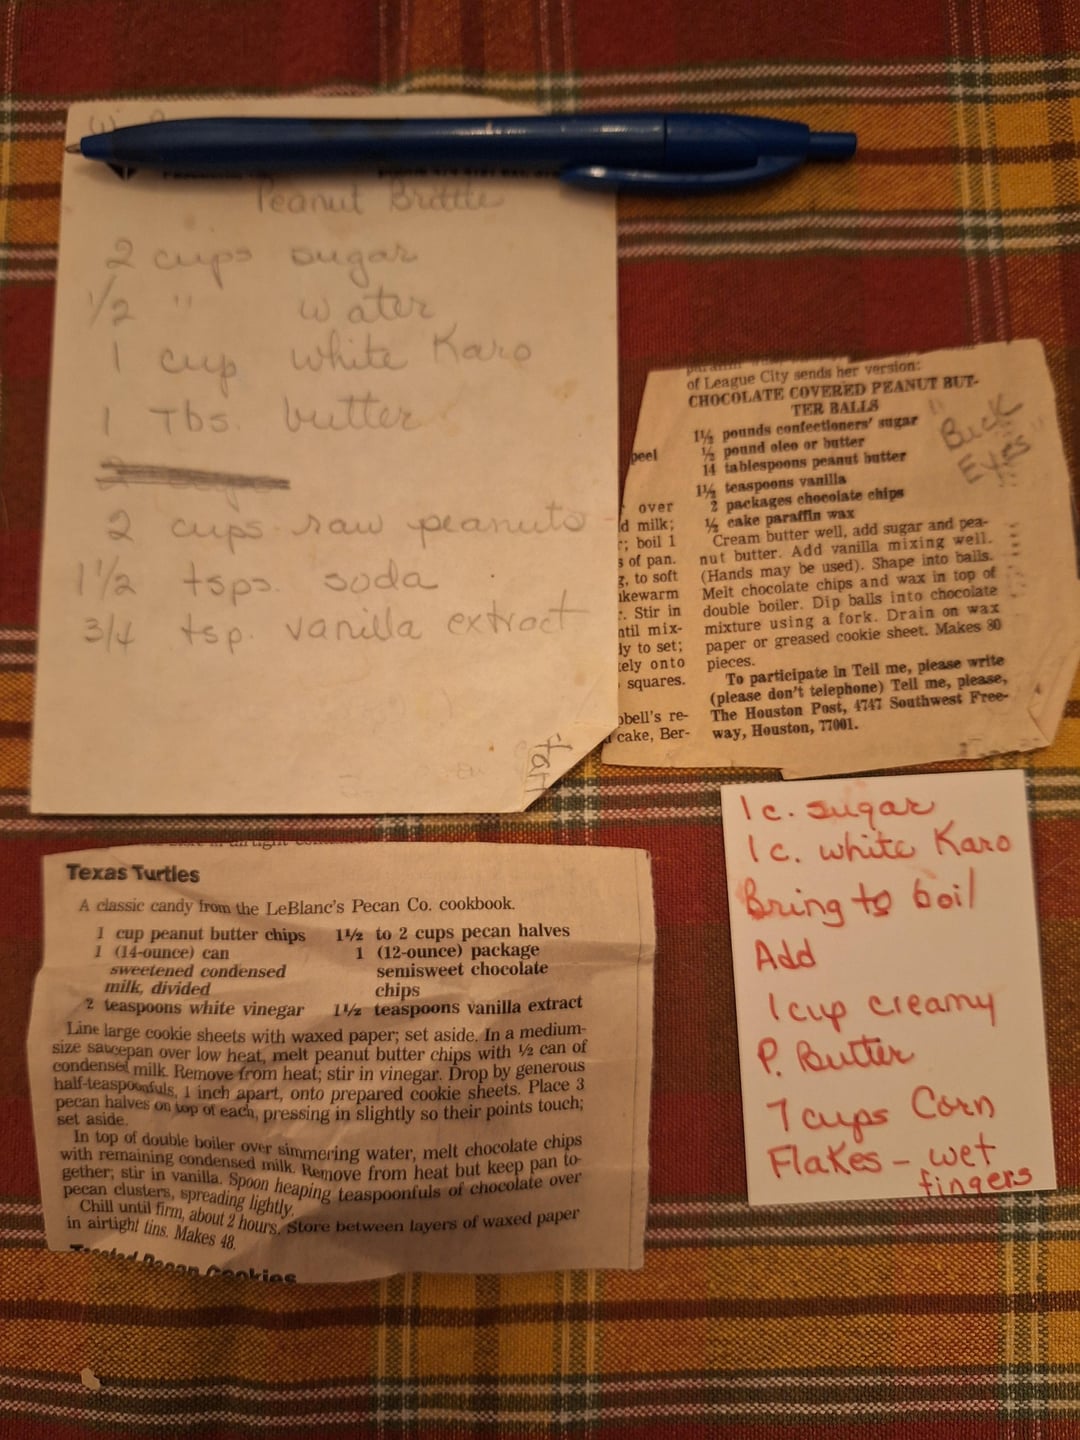 Peanut Brittle
2 cups sugar
1/2 " water
1 cup white Karo
1 Tbs. butter
2 cups raw peanuts
1 1/2 tsps. soda
3/4 tsp. vanilla extract
of League City sends her version:
CHOCOLATE COVERED PEANUT BUT-
TER BALLS
"Buck
Eyes"
1½ pounds confectioners' sugar
½ pound oleo or butter
14 tablespoons peanut butter
1½ teaspoons vanilla
2 packages chocolate chips
½ cake paraffin wax
Cream butter well, add sugar and pea-
nut butter. Add vanilla mixing well.
(Hands may be used). Shape into balls.
Melt chocolate chips and wax in top of
double boiler. Dip balls into chocolate
mixture using a fork. Drain on wax
paper or greased cookie sheet. Makes 80
pieces.
To participate in Tell me, please write
(please don't telephone) Tell me, please,
The Houston Post, 4747 Southwest Free-
way, Houston, 77001.
peel
over
d milk;
; boil 1
s of pan.
, to soft
kewarm
. Stir in
ntil mix-
ly to set;
ely onto
squares.
bell's re-
cake, Ber-
Texas Turtles
A classic candy from the LeBlanc's Pecan Co. cookbook.
1 cup peanut butter chips
1 (14-ounce) can
sweetened condensed
milk, divided
2 teaspoons white vinegar
1½ to 2 cups pecan halves
1 (12-ounce) package
semisweet chocolate
chips
1½ teaspoons vanilla extract
Line large cookie sheets with waxed paper; set aside. In a medium-
size saucepan over low heat, melt peanut butter chips with ½ can of
condensed milk. Remove from heat; stir in vinegar. Drop by generous
half-teaspoonfuls, 1 inch apart, onto prepared cookie sheets. Place 3
pecan halves on top of each, pressing in slightly so their points touch;
set aside.
In top of double boiler over simmering water, melt chocolate chips
with remaining condensed milk. Remove from heat but keep pan to-
gether; stir in vanilla. Spoon heaping teaspoonfuls of chocolate over
pecan clusters, spreading lightly.
Chill until firm, about 2 hours. Store between layers of waxed paper
in airtight tins. Makes 48.
Toasted Pecan Cookies
1 c. sugar
1 c. white Karo
Bring to boil
Add
1 cup creamy
P. Butter
7 cups Corn
Flakes - wet
fingers